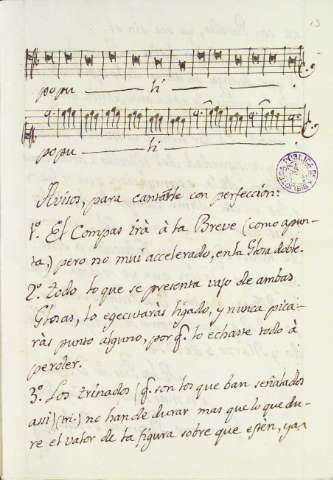 popu li
popu li
Avisos, para cantarse con perfeccion.
1º. El Compas irà à la Breve (como apun-
ta) pero no mui accelerado, en la Glosa doble.
2º. todo lo que se presenta vajo de ambas
Glosas, lo egecutaràs ligado, y nunca pica-
ràs punto alguno, por q. lo echaste todo à
perder.
3º. Los trinados (q. son los que ban señalados
assi) (tri.) no han de durar mas que lo que du-
re el valor de la figura sobre que estèn, ya